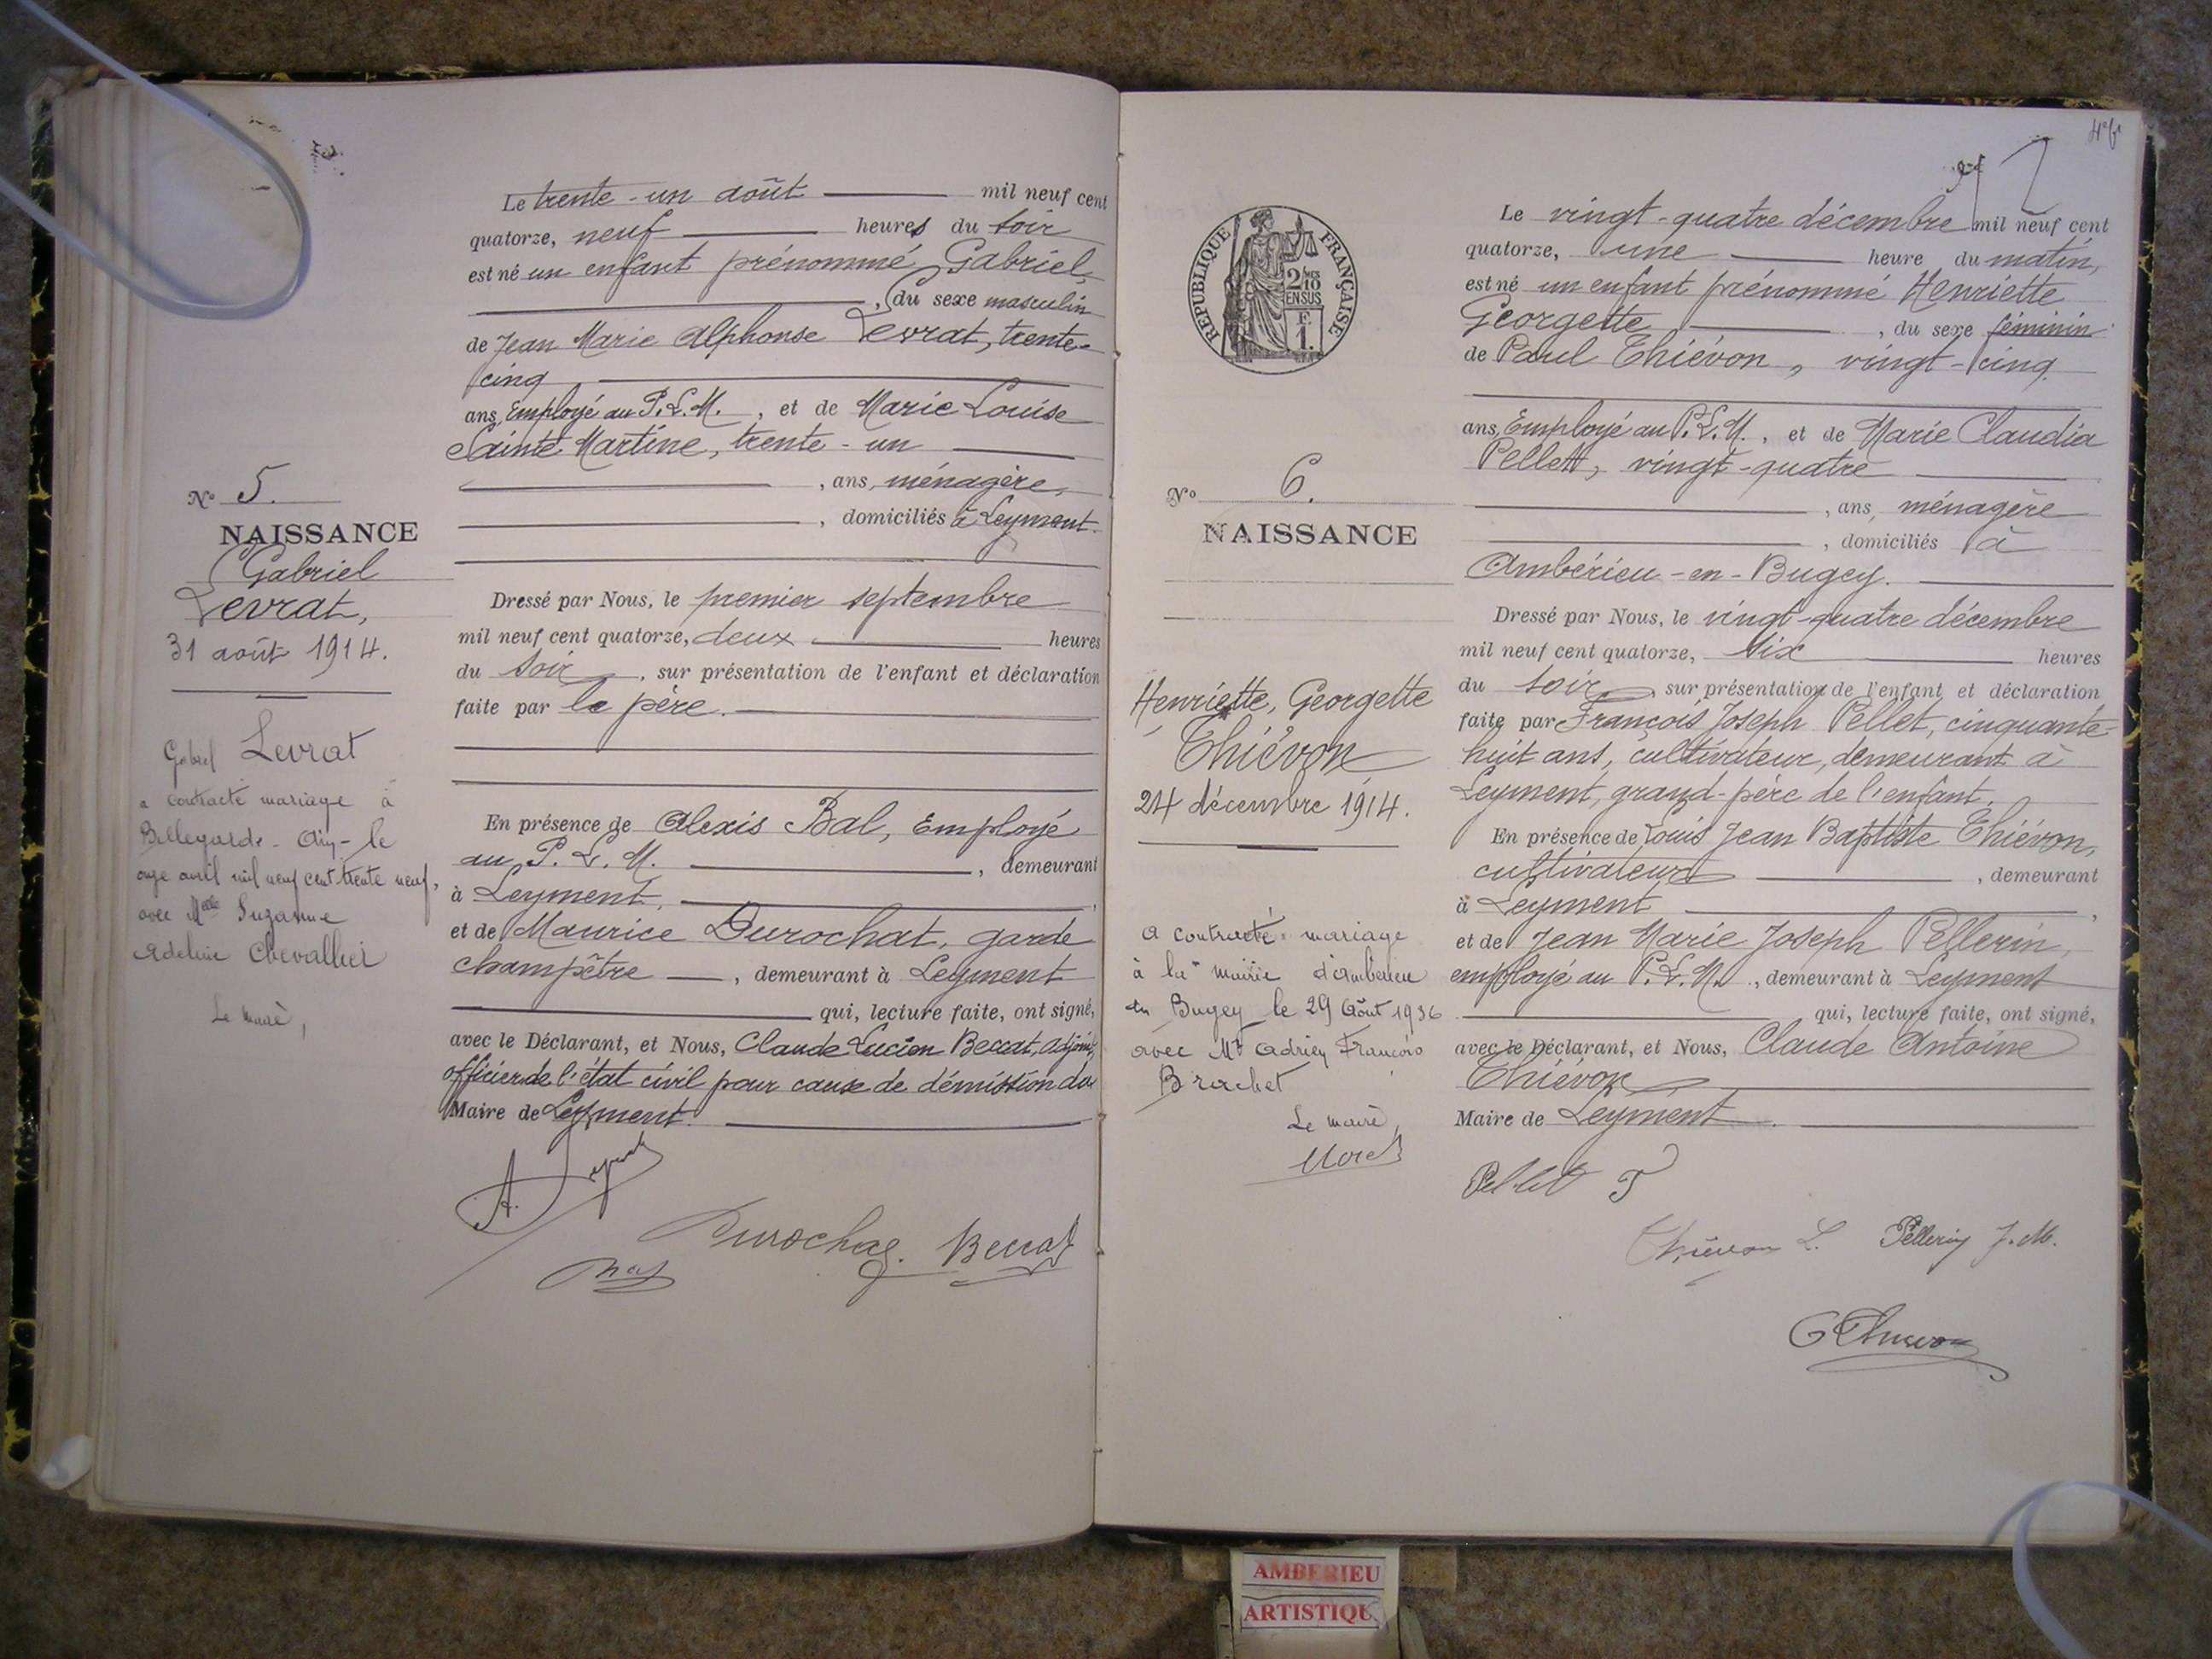 Le trente-un août mil neuf cent
quatorze, neuf heures du soir
est né un enfant prénommé Gabriel,
, du sexe masculin
de Jean Marie Alphonse Levrat, trente-
cinq
ans, Employé au P. L. M. , et de Marie Louise
Sainte Martine, trente-un
, ans, ménagère,
, domiciliés à Leyment.
Dressé par Nous, le premier septembre
mil neuf cent quatorze, deux heures
du soir , sur présentation de l'enfant et déclaration
faite par le père.
En présence de Alexis Bal, Employé
au P. L. M. , demeurant
à Leyment,
et de Maurice Durochat, garde
champêtre , demeurant à Leyment
qui, lecture faite, ont signé,
avec le Déclarant, et Nous, Claude Lucien Beccat, adjoint,
officier de l'état civil pour cause de démission du
Maire de Leyment.
A.
Durochat. Beccat
Bal
No 5.
NAISSANCE
Gabriel
Levrat,
31 août 1914.
Gabriel Levrat
a contracté mariage à
Bellegarde - Ain - le
onze avril mil neuf cent trente neuf,
avec Melle Suzanne
Adeline Chevallier
Le maire,
4e f
REPUBLIQUE FRANÇAISE
2/10
EN SUS
F.
1.
No 6.
NAISSANCE
Henriette, Georgette
Thiévon
24 décembre 1914.
a contracté mariage
à la mairie d'Ambérieu
en Bugey le 29 Août 1936
avec Mr Adrien François
Brachet
Le maire,
Morel
Le vingt-quatre décembre mil neuf cent
quatorze, une heure du matin,
est né un enfant prénommé Henriette
Georgette , du sexe féminin
de Paul Thiévon, vingt-cinq
ans, Employé au P. L. M. , et de Marie Claudia
Pellet, vingt-quatre
, ans, ménagère
, domiciliés à
Ambérieu-en-Bugey.
Dressé par Nous, le vingt-quatre décembre
mil neuf cent quatorze, six heures
du soir , sur présentation de l'enfant et déclaration
faite par François Joseph Pellet, cinquante-
huit ans, cultivateur, demeurant à
Leyment, grand-père de l'enfant.
En présence de Louis Jean Baptiste Thiévon,
cultivateur , demeurant
à Leyment ,
et de Jean Marie Joseph Pellerin,
employé au P. L. M. , demeurant à Leyment
qui, lecture faite, ont signé,
avec le Déclarant, et Nous, Claude Antoine
Thiévon
Maire de Leyment.
Pellet F
Thiévon L. Pellerin J. M.
C Thievon
AMBERIEU
ARTISTIQU